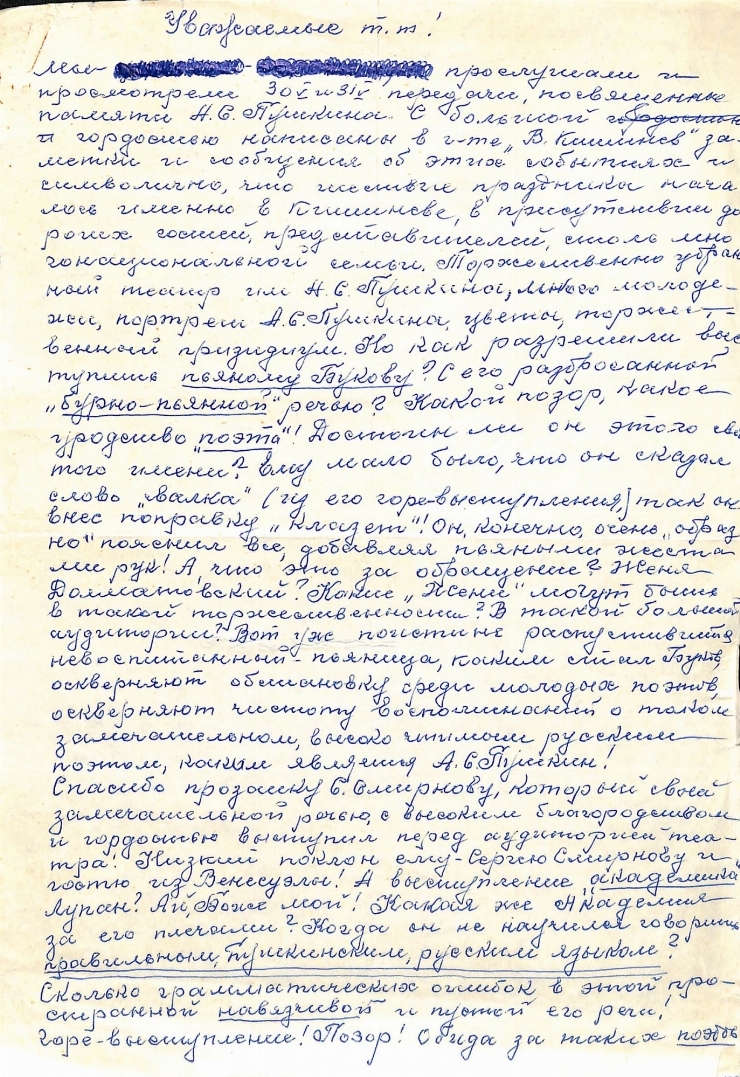 Уважаемые т.т!
Мы - прослушали и
просмотрели 30 V и 31 V передачи, посвященные
памяти А.С.Пушкина. С большой
и гордостью написаны в г-те „В.Кишинев" за-
метки и сообщения об этих событиях и
символично, что шествие праздника нача
лось именно в Кишиневе, в присутствии до
рогих гостей, представителей, столь мно
гонациональной семьи. Торжественно убран
ный театр им А.С.Пушкина, много молоде-
жи, портрет А.С.Пушкина, цветы, торжест-
венный призидиум. Но как разрешили выс
тупить пьяному Букову? С его разбросанной
„бурно-пьянной" речью? Какой позор, какое
уродство „поэта"! Достоин ли он этого свя
того имени? Ему мало было, что он сказал
слово „валка" (из его горе-выступления) так он
внес поправку „клазет"! Он, конечно, очень „образ
но" пояснил все, добавляя пьяными жеста
ми рук! А, что это за обращение? Женя
Долматовский? Какие „Жени" могут быть
в такой торжественности? В такой большой
аудитории? Вот уж поистине распустившийся
невоспитанный - пьяница, каким стал Буков,
оскверняют обстановку среди молодых поэтов,
оскверняют чистоту воспоминаний о таком
замечательном, высоко чтимым русским
поэтом, каким является А.С.Пушкин!
Спасибо прозаику С.Смирнову, который своей
замечательной речью, с высоким благородством
и гордостью выступил перед аудиторией теа-
тра! Низкий поклон ему - Сергею Смирнову и
гостю из Венесуэлы! А выступление „академика"
Лупан? Ай, Боже мой! Какая же Академия
за его плечами? Когда он не научился говорить
правильным, Пушкинским, русским языком?
Сколько грамматических ошибок в этой про-
странной навязчивой и пустой его речи!
Горе-выступление! Позор! Обида за таких поэтов